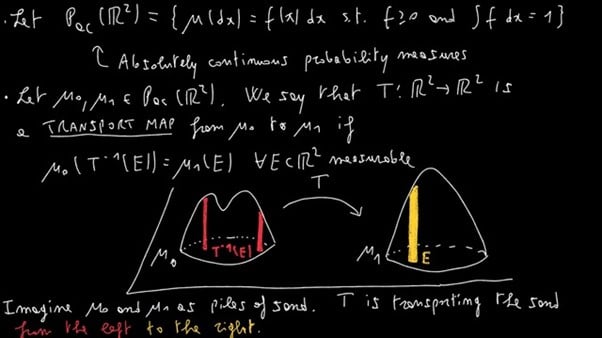 • Let P_ac(ℝ²) = { μ(dx) = f(x) dx s.t. f≥0 and ∫f dx = 1}
Absolutely continuous probability measures
• Let μ₀, μ₁ ∈ P_ac(ℝ²). We say that T: ℝ² → ℝ² is
a TRANSPORT MAP from μ₀ to μ₁ if
μ₀(T⁻¹(E)) = μ₁(E) ∀E⊂ℝ² measurable
T
μ₀ T⁻¹(E) μ₁ E
Imagine μ₀ and μ₁ as piles of sand. T is transporting the sand
from the left to the right.